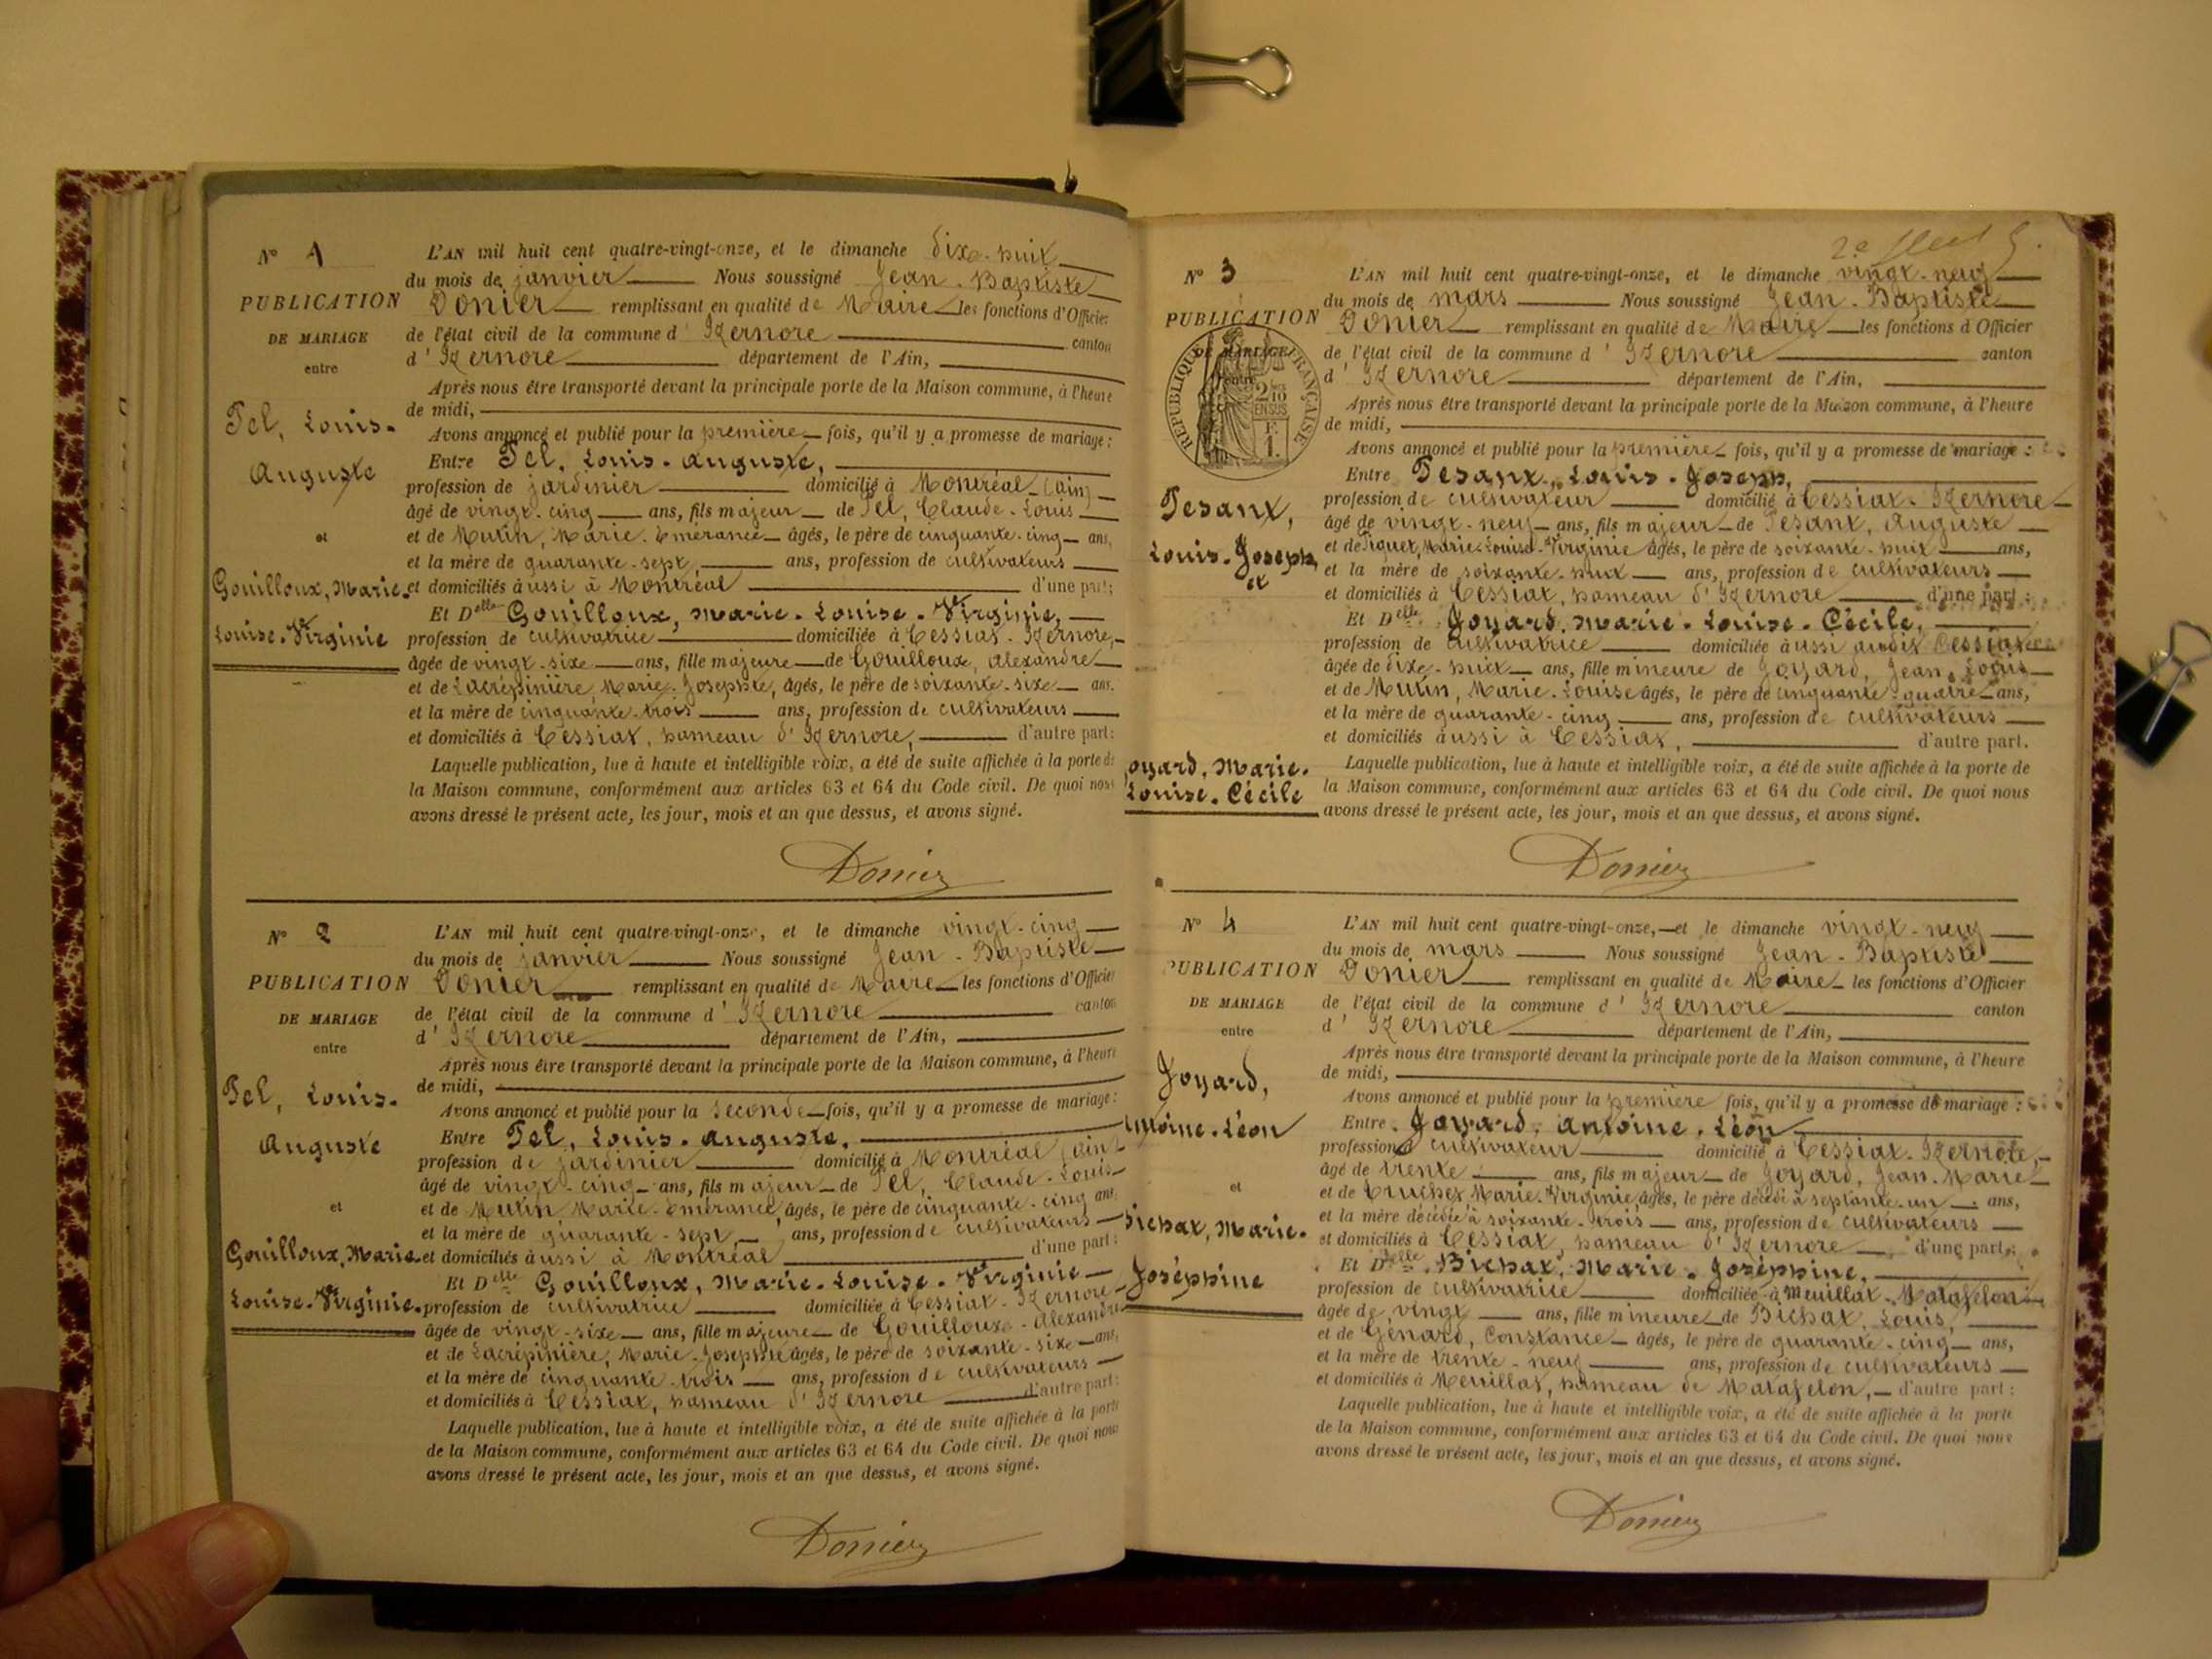 N° 1
PUBLICATION
DE MARIAGE
entre
Pel, Louis-
Auguste
et
Gouilloux, Marie-
Louise-Virginie
L'AN mil huit cent quatre-vingt-onze, et le dimanche dixe-huit
du mois de janvier Nous soussigné Jean-Baptiste
Donier remplissant en qualité de Maire les fonctions d'Officier
de l'état civil de la commune d'Izernore canton
d'Izernore département de l'Ain,
Après nous être transporté devant la principale porte de la Maison commune, à l'heure
de midi,
Avons annoncé et publié pour la première fois, qu'il y a promesse de mariage :
Entre Pel, Louis-Auguste,
profession de jardinier domicilié à Montréal (ain)
âgé de vingt-cinq ans, fils majeur de Pel, Claude-Louis
et de Mutin, Marie-Emérance âgés, le père de cinquante-cinq ans,
et la mère de quarante-sept, ans, profession de cultivateurs
et domiciliés aussi à Montréal d'une part;
Et Delle Gouilloux, Marie-Louise-Virginie,
profession de cultivatrice domiciliée à Cessiat-Izernore,
âgée de vingt-sixe ans, fille majeure de Gouilloux, Alexandre
et de Lacrépinière, Marie-Josephte, âgés, le père de soixante-sixe ans.
et la mère de cinquante-trois ans, profession de cultivateurs
et domiciliés à Cessiat, hameau d'Izernore, d'autre part:
Laquelle publication, lue à haute et intelligible voix, a été de suite affichée à la porte de
la Maison commune, conformément aux articles 63 et 64 du Code civil. De quoi nous
avons dressé le présent acte, les jour, mois et an que dessus, et avons signé.
Donier
N° 2
PUBLICATION
DE MARIAGE
entre
Pel, Louis-
Auguste
et
Gouilloux, Marie-
Louise-Virginie.
L'AN mil huit cent quatre-vingt-onze, et le dimanche vingt-cinq
du mois de janvier Nous soussigné Jean-Baptiste
Donier remplissant en qualité de Maire les fonctions d'Officier
de l'état civil de la commune d'Izernore canton
d'Izernore département de l'Ain,
Après nous être transporté devant la principale porte de la Maison commune, à l'heure
de midi,
Avons annoncé et publié pour la seconde fois, qu'il y a promesse de mariage:
Entre Pel, Louis-Auguste,
profession de jardinier domicilié à Montréal (ain)
âgé de vingt-cinq ans, fils majeur de Pel, Claude-Louis
et de Mutin Marie-Emérance âgés, le père de cinquante-cinq ans,
et la mère de quarante-sept, ans, profession de cultivateurs
et domiciliés aussi à Montréal d'une part:
Et Delle Gouilloux, Marie-Louise-Virginie
profession de cultivatrice domiciliée à Cessiat-Izernore
âgée de vingt-sixe ans, fille majeure de Gouilloux-Alexandre
et de Lacrépinière, Marie-Josephte âgés, le père de soixante-sixe ans,
et la mère de cinquante-trois ans, profession de cultivateurs
et domiciliés à Cessiat, hameau d'Izernore d'autre part:
Laquelle publication, lue à haute et intelligible voix, a été de suite affichée à la porte
de la Maison commune, conformément aux articles 63 et 64 du Code civil. De quoi nous
avons dressé le présent acte, les jour, mois et an que dessus, et avons signé.
Donier
N° 3
PUBLICATION
DE MARIAGE
entre
RÉPUBLIQUE FRANÇAISE
2/10
EN SUS
F.
1.
Pesant,
Louis-Joseph,
et
Joyard, Marie-
Louise-Cécile
L'AN mil huit cent quatre-vingt-onze, et le dimanche vingt-neuf
du mois de mars Nous soussigné Jean-Baptiste
Donier remplissant en qualité de Maire les fonctions d'Officier
de l'état civil de la commune d'Izernore canton
d'Izernore département de l'Ain,
Après nous être transporté devant la principale porte de la Maison commune, à l'heure
de midi,
Avons annoncé et publié pour la première fois, qu'il y a promesse de mariage :
Entre Pesant, Louis-Joseph,
profession de cultivateur domicilié à Cessiat-Izernore
âgé de vingt-neuf ans, fils majeur de Pesant, Auguste
et de Piquet, Marie-Louise-Virginie âgés, le père de soixante-huit ans,
et la mère de soixante-huit ans, profession de cultivateurs
et domiciliés à Cessiat, hameau d'Izernore d'une part:
Et Delle Joyard, Marie-Louise-Cécile,
profession de cultivatrice domiciliée aussi audit Cessiat
âgée de dixe-huit ans, fille mineure de Joyard, Jean-Louis
et de Mutin, Marie-Louise âgés, le père de cinquante-quatre ans,
et la mère de quarante-cinq ans, profession de cultivateurs
et domiciliés aussi à Cessiat, d'autre part.
Laquelle publication, lue à haute et intelligible voix, a été de suite affichée à la porte de
la Maison commune, conformément aux articles 63 et 64 du Code civil. De quoi nous
avons dressé le présent acte, les jour, mois et an que dessus, et avons signé.
Donier
N° 4
PUBLICATION
DE MARIAGE
entre
Joyard,
Antoine-Léon
et
Bichat, Marie-
Joséphine
L'AN mil huit cent quatre-vingt-onze, et le dimanche vingt-neuf
du mois de mars Nous soussigné Jean-Baptiste
Donier remplissant en qualité de Maire les fonctions d'Officier
de l'état civil de la commune d'Izernore canton
d'Izernore département de l'Ain,
Après nous être transporté devant la principale porte de la Maison commune, à l'heure
de midi,
Avons annoncé et publié pour la première fois, qu'il y a promesse de mariage :
Entre Joyard, Antoine-Léon
profession de cultivateur domicilié à Cessiat-Izernore,
âgé de trente ans, fils majeur de Joyard, Jean-Marie
et de Truchet Marie-Virginie, âgés, le père décédé à septante-un ans,
et la mère décédée à soixante-trois ans, profession de cultivateurs
et domiciliés à Cessiat, hameau d'Izernore d'une part;
Et Delle Bichat, Marie-Joséphine,
profession de cultivatrice domiciliée à Meuillat-Matafelon
âgée de vingt ans, fille mineure de Bichat, Louis,
et de Génard, Constance âgés, le père de quarante-cinq ans,
et la mère de trente-neuf ans, profession de cultivateurs
et domiciliés à Meuillat, hameau de Matafelon, d'autre part:
Laquelle publication, lue à haute et intelligible voix, a été de suite affichée à la porte
de la Maison commune, conformément aux articles 63 et 64 du Code civil. De quoi nous
avons dressé le présent acte, les jour, mois et an que dessus, et avons signé.
Donier